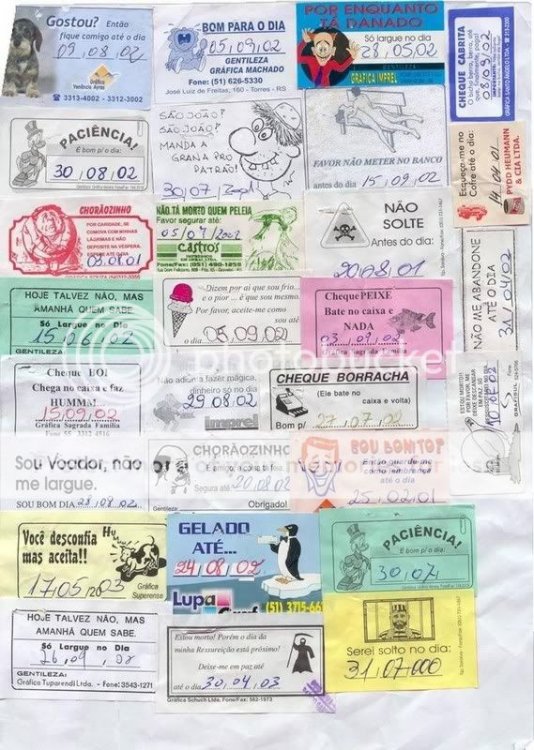 Gostou? Então
fique comigo até o dia
09,08,02
Gráfica
Venâncio Aires
3313-4002 - 3312-3002
BOM PARA O DIA
05,09,02
GENTILEZA
GRÁFICA MACHADO
Fone: (51) 626-5330
José Luiz de Freitas, 160 - Torres - RS
POR ENQUANTO
TÁ DANADO
Só largue no dia
28,05,02
GRÁFICA IMPREL
CHEQUE CABRITA
08/09/02
PACIÊNCIA!
É bom p/ o dia:
30,08,02
SÃO JOÃO?
SÃO JOÃO?
MANDA A
GRANA PRO
PATRÃO!
30/07
FAVOR NÃO METER NO BANCO
antes do dia 15,09,02
Esqueça-me no
Cofre até o dia:
14,04,01
PYDD HEUMANN
& CIA LTDA.
CHORÃOZINHO
POR CARIDADE, SE
COMOVA COM MINHAS
LÁGRIMAS E NÃO
DEPOSITE NA VÉSPERA.
NÃO TÁ MORTO QUEM PELEIA
Favor segurar até:
05/07/2002
Castros
NÃO
SOLTE
Antes do dia:
20,08,01
NÃO ME ABANDONE
ATÉ O DIA
31/04/02
HOJE TALVEZ NÃO, MAS
AMANHÃ QUEM SABE.
Só Largue no Dia
15,06,02
GENTILEZA:
Dizem por aí que sou frio...
e o pior ... é que sou mesmo.
Por favor, aceite-me como
sou até
o dia
05,09,02
Cheque PEIXE
Bate no caixa e
NADA
03,09,02
Gráfica Sagrada Família
Cheque BOI
Chega no caixa e faz
HUMMM!
15,09,02
Gráfica Sagrada Família
Não adianta fazer mágica,
dinheiro só no dia
29,08,02
CHEQUE BORRACHA
(Ele bate no
caixa e volta)
Bom p/ 27,07,02
10,06,02
Sou Voador, não
me largue.
SOU BOM DIA 28,08,02
CHORÃOZINHO
Segura até 20,08,02
Obrigado!
SOU BONITO?
Então guarde-me
como lembrança
até o dia
25,02,01
Você desconfia
mas aceita!!
17,05,2003
Gráfica
Superensa
GELADO
ATÉ...
24,08,02
Lupa
Graf
(51) 3715-66
PACIÊNCIA!
É bom p/ o dia:
30,07
HOJE TALVEZ NÃO, MAS
AMANHÃ QUEM SABE.
Só Largue no Dia
26,09,02
GENTILEZA:
Gráfica Tuparendi Ltda. - Fone: 3543-1271
Estou morto! Porém o dia da
minha Ressureição está próximo!
Deixe-me em paz
até o dia 30,04,03
Gráfica Schuch Ltda. Fone/Fax: 562-1973
Serei solto no dia:
31,07,000
photobucket